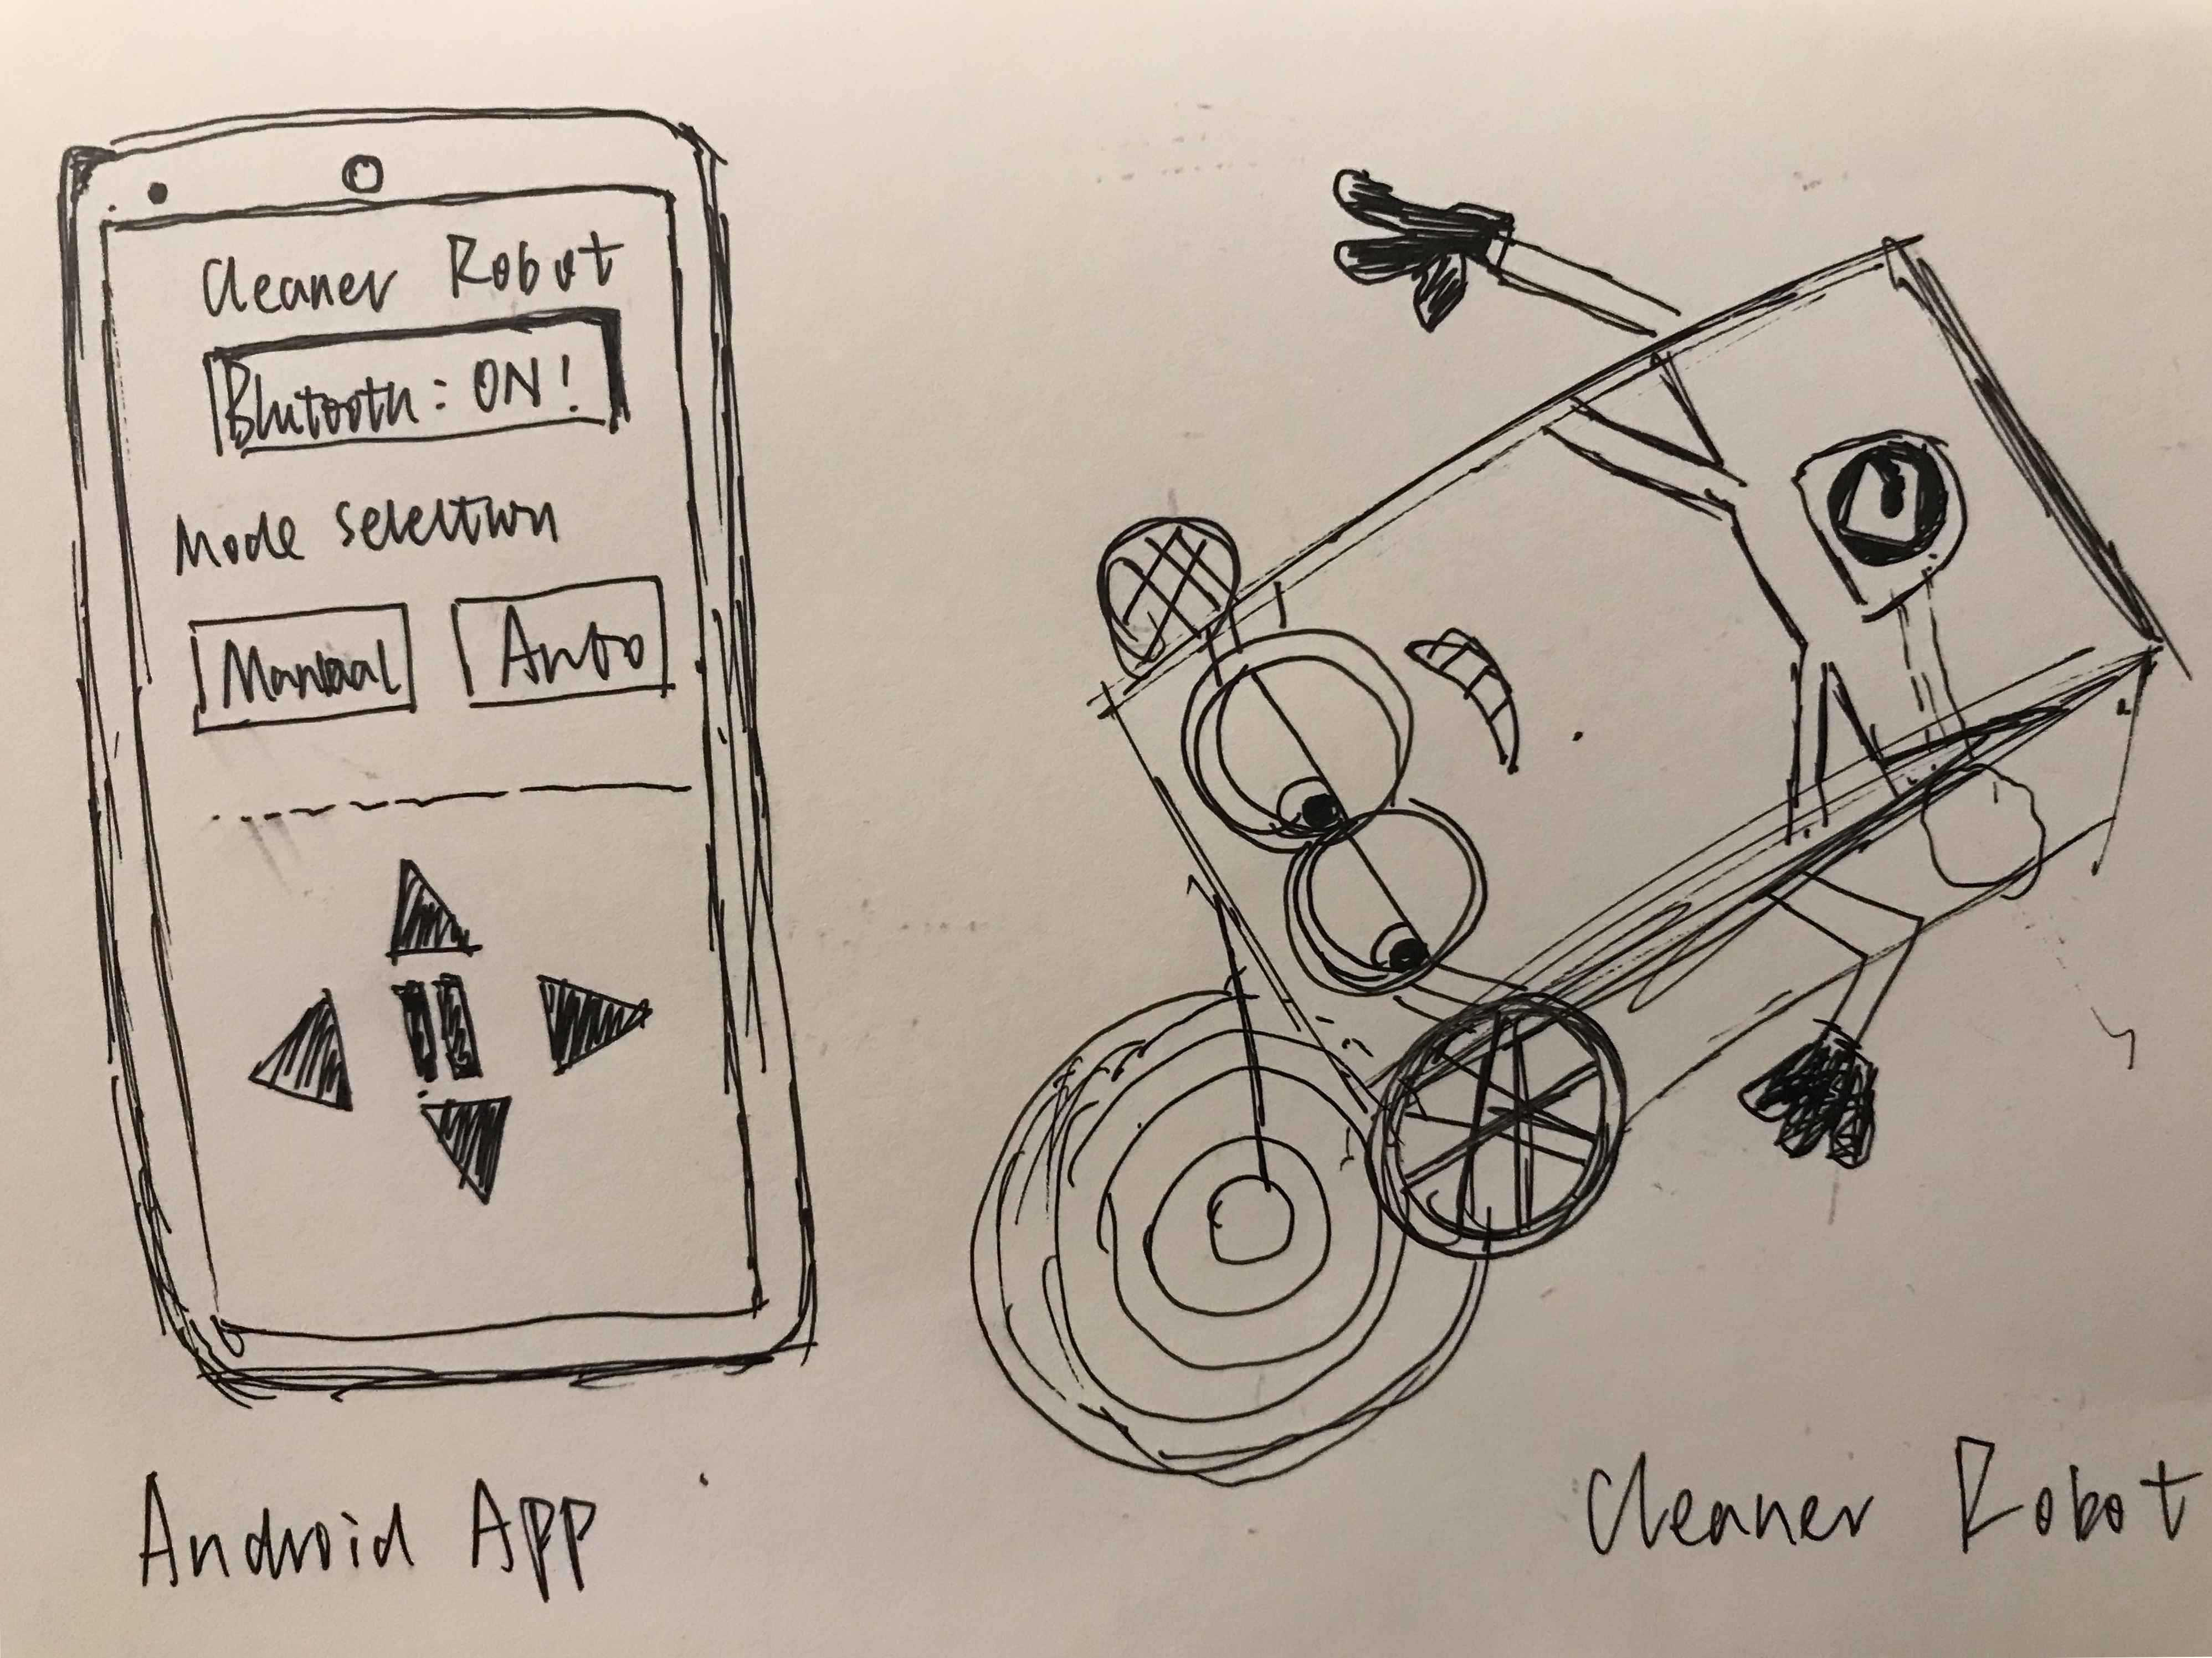 Cleaner Robot
Blutooth: ON!
Mode selection
Manual
Auto
Android App
Cleaner Robot